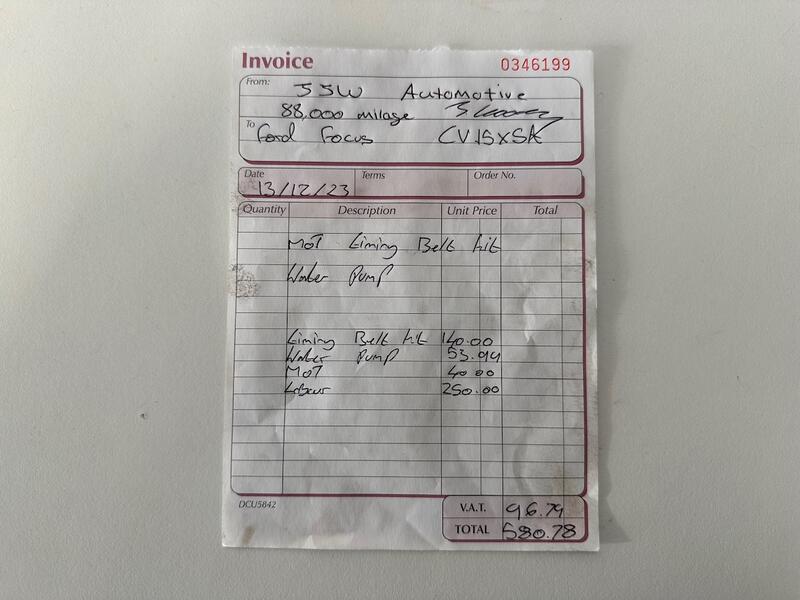 Invoice 0346199
From: JJW Automotive
88,000 milage
To Ford Focus CV15XSK
Date Terms Order No.
13/12/23
Quantity Description Unit Price Total
MOT timing Belt kit
Water Pump
timing Belt kit 140.00
Water Pump 53.94
MOT 40.00
Labour 250.00
DCU5842
V.A.T. 96.79
TOTAL 580.78